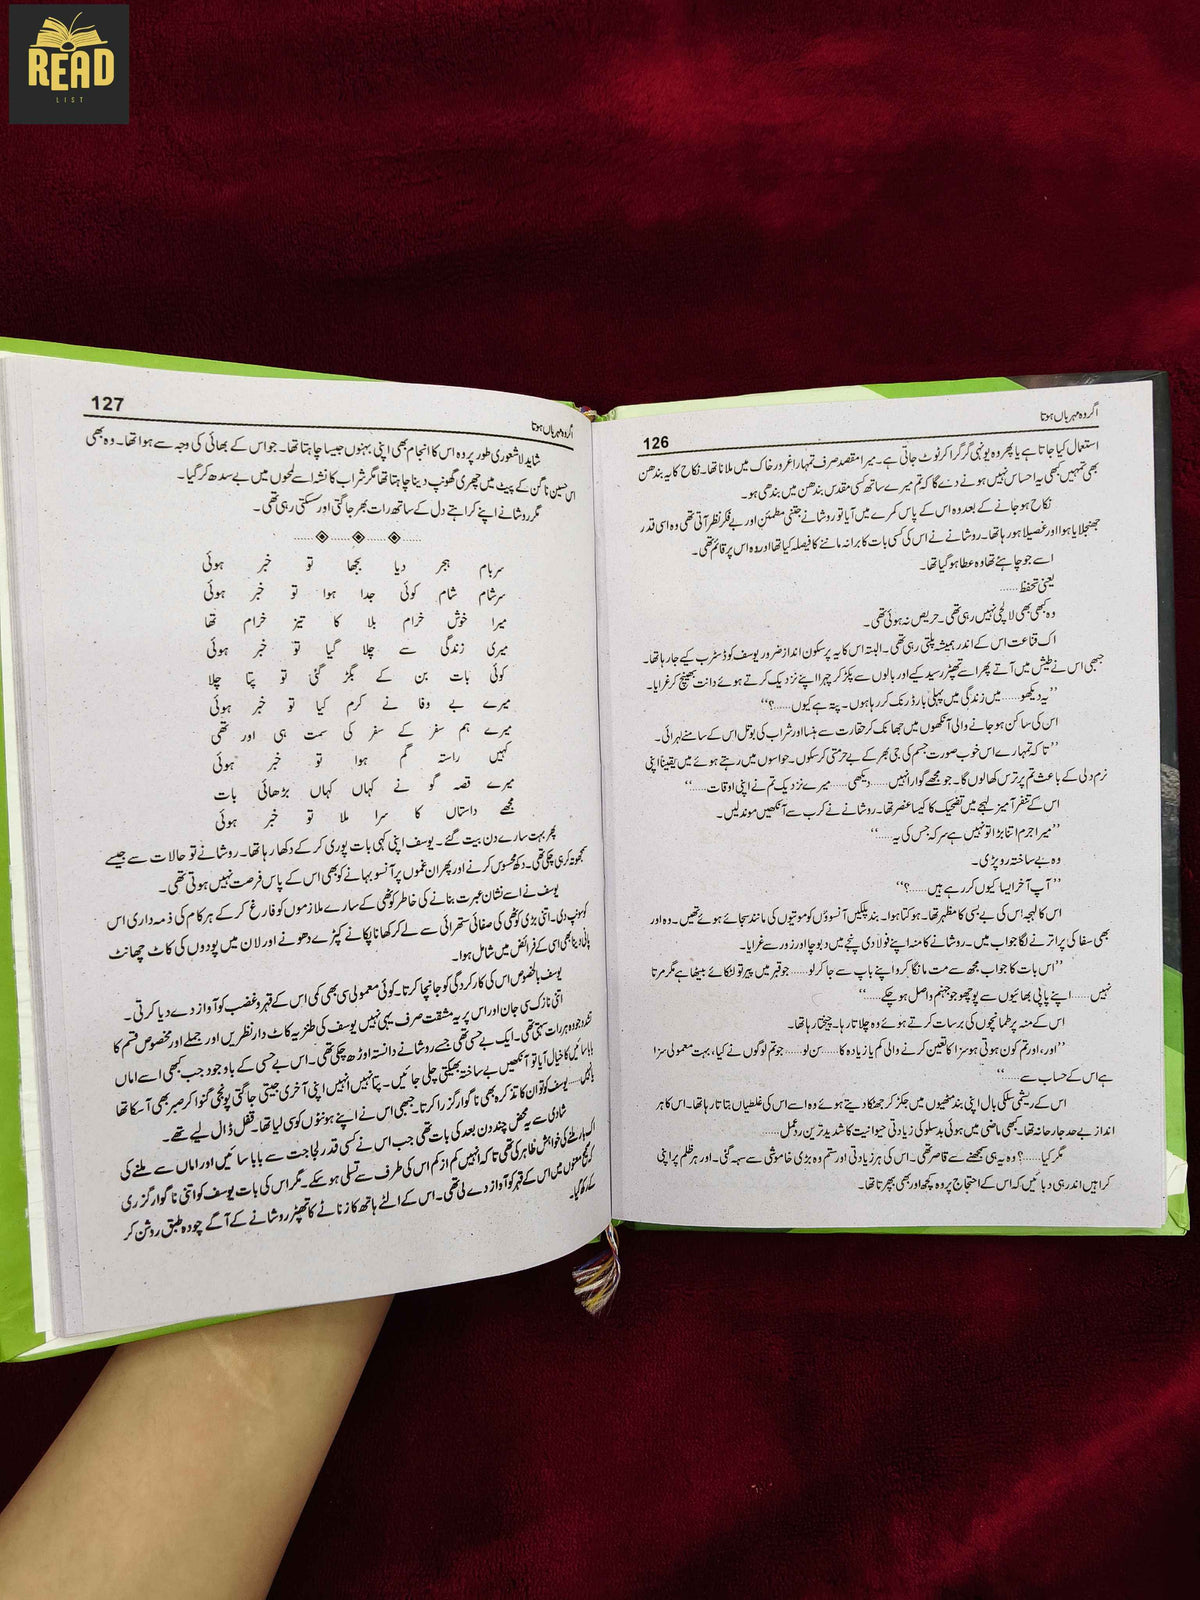 READ
LIST
126
اگر وہ مہرباں ہوتا
استعمال کیا جاتا ہے یا پھر وہ یونہی گر گرا کر ٹوٹ جاتی ہے۔ میرا مقصد صرف تمہارا غرور خاک میں ملانا تھا۔ نکاح کا یہ بندھن
بھی تمہیں کبھی یہ احساس نہیں ہونے دے گا کہ تم میرے ساتھ کسی مقدس بندھن میں بندھی ہو۔
نکاح ہو جانے کے بعد وہ اس کے پاس کمرے میں آیا تو روشانے جتنی مطمئن اور بے فکر نظر آتی تھی وہ اسی قدر
جھنجلایا ہوا اور غصیلا ہو رہا تھا۔ روشانے نے اس کی کسی بات کا برا نہ ماننے کا فیصلہ کیا تھا اور وہ اس پر قائم تھی۔
اسے جو چاہئے تھا وہ عطا ہو گیا تھا۔
یعنی تحفظ......
وہ کبھی بھی لالچی نہیں رہی تھی۔ حریص نہ ہوئی تھی۔
اک قناعت اس کے اندر ہمیشہ پلتی رہی تھی۔ البتہ اس کا یہ پر سکون انداز ضرور یوسف کو ڈسٹرب کیے جا رہا تھا۔
جبھی اس نے طیش میں آتے پھر اسے تھپڑ رسید کیے اور بالوں سے پکڑ کر چہرا اپنے نزدیک کرتے ہوئے دانت بھینچ کر غرایا۔
’’یہ دیکھو...... میں زندگی میں پہلی بار ڈرنک کر رہا ہوں۔ پتہ ہے کیوں......؟‘‘
اس کی ساکن ہو جانے والی آنکھوں میں جھانک کر حقارت سے ہنسا اور شراب کی بوتل اس کے سامنے لہرائی۔
’’تا کہ تمہارے اس خوب صورت جسم کی جی بھر کے بے حرمتی کر سکوں۔ حواسوں میں رہتے ہوئے میں یقیناً اپنی
نرم دلی کے باعث تم پر ترس کھا لوں گا۔ جو مجھے گوارا نہیں...... دیکھی...... میرے نزدیک تم نے اپنی اوقات......‘‘
اس کے تنفر آمیز لہجے میں تضحیک کا کیسا عنصر تھا۔ روشانے نے کرب سے آنکھیں موند لیں۔
’’میرا جرم اتنا بڑا تو نہیں ہے سر کہ جس کی یہ......‘‘
وہ بے ساختہ رو پڑی۔
’’آپ آخر ایسا کیوں کر رہے ہیں......؟‘‘
اس کا لہجہ اس کی بے بسی کا مظہر تھا۔ ہو کتا ہوا۔ بند پلکیں آنسوؤں کو موتیوں کی مانند سجائے ہوئے تھیں۔ وہ اور
بھی سفاکی پر اترنے لگا جواب میں۔ روشانے کا منہ اپنے فولادی پنجے میں دبوچا اور زور سے غرایا۔
’’اس بات کا جواب مجھ سے مت مانگا کرو اپنے باپ سے جا کر لو...... جو قبر میں پیر تو لٹکائے بیٹھا ہے مگر مرتا
نہیں...... اپنے پاپی بھائیوں سے پوچھو جو جہنم واصل ہو چکے......‘‘
اس کے منہ پر طمانچوں کی برسات کرتے ہوئے وہ چلاتا رہا۔ چیختا رہا تھا۔
’’اور، اور تم کون ہوتی ہو سزا کا تعین کرنے والی کم یا زیادہ کا...... سن لو...... جو تم لوگوں نے کیا، بہت معمولی سزا
ہے اس کے حساب سے......‘‘
اس کے ریشمی سلکی بال اپنی بند مٹھیوں میں جکڑ کر جھٹکا دیتے ہوئے وہ اسے اس کی غلطیاں بتاتا رہا تھا۔ اس کا ہر
انداز بے حد جارحانہ تھا۔ کبھی ماضی میں ہوئی بدسلوکی زیادتی اور حیوانیت کا شدید ترین ردعمل......
مگر کیا......؟ وہ یہ ہی سمجھنے سے قاصر تھی۔ اس کی ہر زیادتی اور ستم وہ بڑی خاموشی سے سہہ گئی۔ اور ہر ظلم پر اپنی
کراہیں اندر ہی دبائیں کہ اس کے احتجاج پر وہ کچھ اور بھی بپھرتا تھا۔
127
اگر وہ مہرباں ہوتا
شاید لاشعوری طور پر وہ اس کا انجام بھی اپنی بہنوں جیسا چاہتا تھا۔ جو اس کے بھائی کی وجہ سے ہوا تھا۔ وہ بھی
اس حسین ناگن کے پیٹ میں چھری گھونپ دینا چاہتا تھا مگر شراب کا نشہ اسے لمحوں میں بے سدھ کر گیا۔
مگر روشانے اپنے کراہتے دل کے ساتھ رات بھر جاگتی اور سسکتی رہی تھی۔
سر بام ہجر دیا بجھا تو خبر ہوئی
سرشام شام کوئی جدا ہوا تو خبر ہوئی
میرا خوش خرام بلا کا تیز خرام تھا
میری زندگی سے چلا گیا تو خبر ہوئی
کوئی بات بن کے بگڑ گئی تو پتا چلا
میرے بے وفا نے کرم کیا تو خبر ہوئی
میرے ہم سفر کے سفر کی سمت ہی اور تھی
کہیں راستہ گم ہوا تو خبر ہوئی
میرے قصہ گو نے کہاں کہاں بڑھائی بات
مجھے داستاں کا سرا ملا تو خبر ہوئی
پھر بہت سارے دن بیت گئے۔ یوسف اپنی کہی بات پوری کر کے دکھا رہا تھا۔ روشانے تو حالات سے جیسے
سمجھوتہ کر ہی چکی تھی۔ دکھ محسوس کرنے اور پھر ان غموں پر آنسو بہانے کو بھی اس کے پاس فرصت نہیں ہوتی تھی۔
یوسف نے اسے نشان عبرت بنانے کی خاطر کوٹھی کے سارے ملازموں کو فارغ کر کے ہر کام کی ذمہ داری اس
کو سونپ دی۔ اتنی بڑی کوٹھی کی صفائی ستھرائی سے لے کر کھانا پکانے کپڑے دھونے اور لان میں پودوں کی کاٹ چھانٹ
پانی دینا بھی اسی کے فرائض میں شامل ہوا۔
یوسف بالخصوص اس کی کارکردگی کو جانچا کرتا۔ کوئی معمولی سی بھی کمی اس کے قہر و غضب کو آواز دے دیا کرتی۔
اتنی نازک سی جان اور اس پر یہ مشقت صرف یہی نہیں یوسف کی طنزیہ کاٹ دار نظریں اور جملے اور مخصوص قسم کا
تشدد جو وہ ہر رات سہتی تھی۔ ایک بے حسی تھی جسے روشانے دانستہ اوڑھ چکی تھی۔ اس بے حسی کے باوجود جب کبھی اسے اماں
بابا سائیں کا خیال آیا تو آنکھیں بے ساختہ بھیگتی چلی جاتیں۔ پتا نہیں انہیں اپنی آخری جیتی جاگتی پونجی گنوا کر صبر بھی آ سکا تھا
یا نہیں...... یوسف کو تو ان کا تذکرہ بھی ناگوار گزرا کرتا۔ جبھی اس نے اپنے ہونٹوں کو سی لیا تھا۔ قفل ڈال لیے تھے۔
شادی سے محض چند دن بعد کی بات تھی جب اس نے کسی قدر لجاجت سے بابا سائیں اور اماں سے ملنے کی
خواہش ظاہر کی تھی تا کہ انہیں کم از کم اس کی طرف سے تسلی ہو سکے۔ مگر اس کی بات یوسف کو اتنی ناگوار گزری
معنوں میں اس کے قہر کو آواز دے لی تھی۔ اس کے الٹے ہاتھ کا زناٹے کا تھپڑ روشانے کے آگے چودہ طبق روشن کر